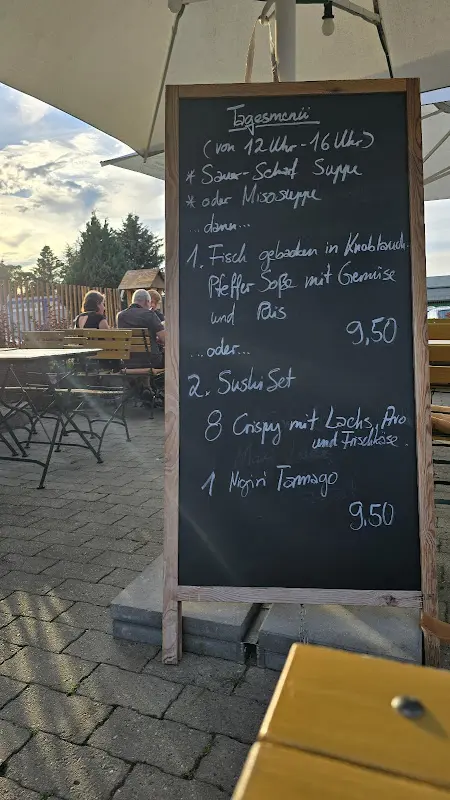 Tagesmenü
(von 12 Uhr - 16 Uhr)
* Sauer-Scharf Suppe
* oder Misosuppe
...dann...
1. Fisch gebacken in Knoblauch
Pfeffer Soße mit Gemüse
und Reis
9,50
...oder...
2. Sushi Set
8 Crispy mit Lachs, Avo
und Frischkäse.
1 Nigiri Tamago
9,50